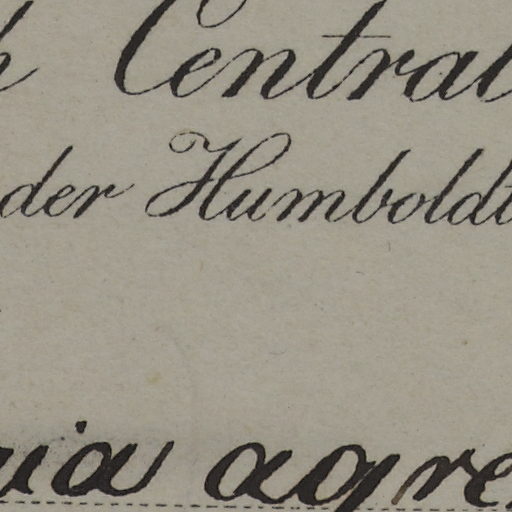 h Central
der Humboldt
ia agre